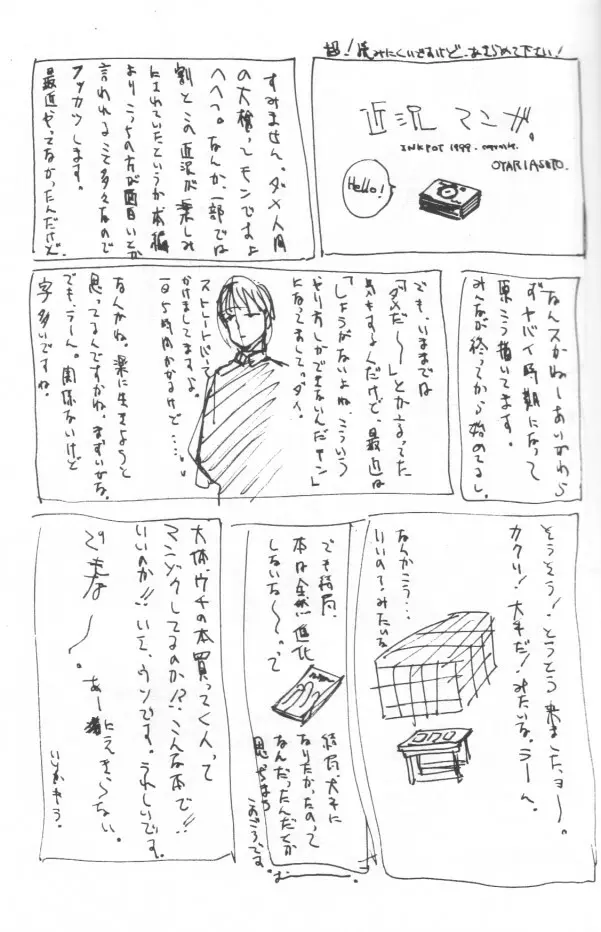 超!読みにくいですけど、あきらめて下さい!
近況マンガ。
INKPOT 1999.
OYARIASITO.
Hello!
すみません。ダメ人間
の大槍ってモンですよ
へへへ。なんか、一部では
割とこの近況が楽しみ
にされていたというか本編
よりこっちの方が面白いとか
言われること多々なので
フッカツします。
最近やってなかったんだけど
なんスかねーあいかわら
ずヤバイ時期になって
原こう描いてます。
みんなが終ってから始めてるし。
でも、いままでは
「ダメだ〜」とか言ってた
気もするんだけど、最近は
「しょうがないよね、こういう
やり方しかできないんだモン」
になってまして。ダメ。
ストレートパーマ
かけましてますよ。
一日5時間かかるけど……。
なんかね。楽に生きようと
思ってるんですかね。まずいかな。
でも、うーん。関係ないけど
字多いですね。
そうそう!とうとう来ましたョ〜。
カクリ!大手だ!みたいな。うーん。
なんかこう…
いいの?みたいな
でも結局、
本は全然進化
しないな〜って
結局、大手に
なりたかったのって
なんだったんだとか
思っちまう
おごうです。
大体、ウチの本買ってく人って
マンゾクしてるのか!?こんな本で!!
いいのか!!いえ、ウソです。うれしいです。
でもな〜。